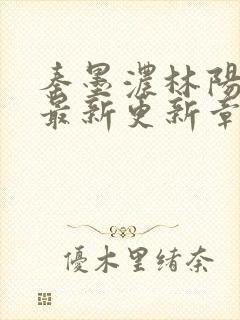 秦墨濃林陽
最新更新章
優木里緒奈